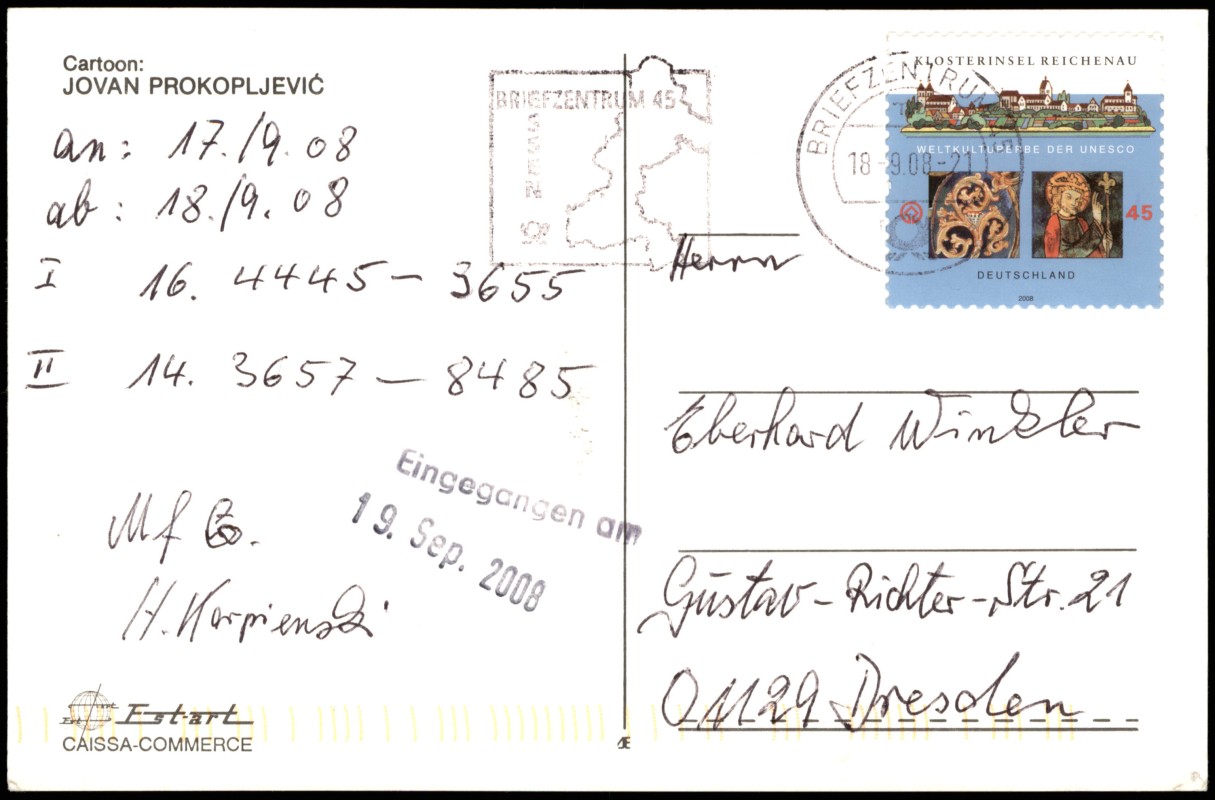 Cartoon:
JOVAN PROKOPLJEVIĆ
an: 17./9. 08
ab: 18./9. 08
I 16. 4445 – 3655
II 14. 3657 – 8485
Mf
H. Karpienski
Eingegangen am
19. Sep. 2008
Est-art
CAISSA-COMMERCE
BRIEFZENTRUM 45
BRIEFZENTRUM
18-9.08-21
KLOSTERINSEL REICHENAU
WELTKULTURERBE DER UNESCO
45
DEUTSCHLAND
2008
Herrn
Eberhard Winkler
Gustav-Richter-Str. 21
01129 Dresden